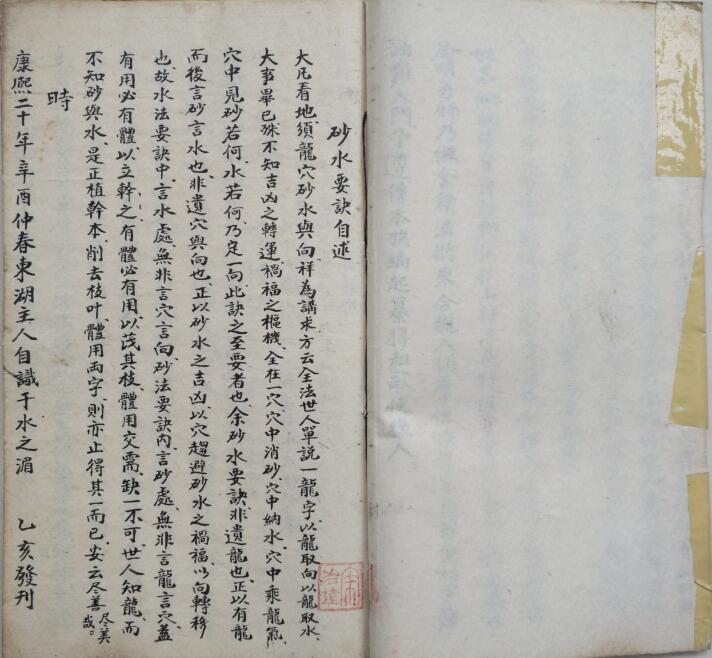 砂水要訣自述
大凡看地、須龍穴砂水與向祥為講求、方云全法世人單說一龍字以龍取向以龍取水、
大事畢已殊不知吉凶之轉運、禍福之樞機、全在一穴、穴中消砂、穴中納水、穴中乘龍氣、
穴中見砂若何、水若何、乃定一向此訣之至要者也、余砂水要訣、非遺龍也、正以有龍
而後言砂言水也、非遺穴與向也、正以砂水之吉凶、以穴趨避砂水之禍福、以向轉移
也、故水法要訣中、言水處、無非言穴言向、砂法要訣內、言砂處、無非言龍言穴、蓋
有用必有體、以立幹之、有體必有用、以茂其枝、體用交需、缺一不可、世人知龍、而
不知砂與水、是正植幹本、削去枝叶、體用両字、則亦止得其一而已、安云尽善尽美哉。
時
康熙二十年辛酉仲春東湖主人自識于水之湄 乙亥發刊